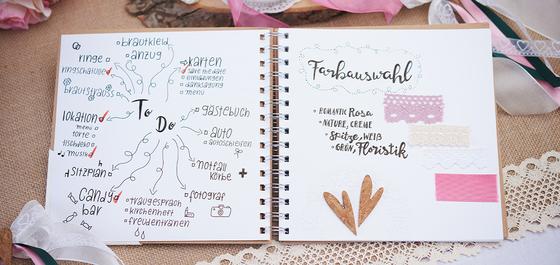 brautkleid
anzug
ringe
ringschatulle
brautstrauss
lokation
menü
torte
tischdeko
musik
sitzplan
Candy
bar
To
Do
karten
save the date
einladungen
danksagung
menü
gästebuch
auto
autoschleifen
notfall
körbe
fotograf
traugespräch
kirchenheft
freudentränen
Farbauswahl
• ROMANTIC Rosa
• NATURE, CREME
• Spitze, WEIß
• GRÜN, Floristik